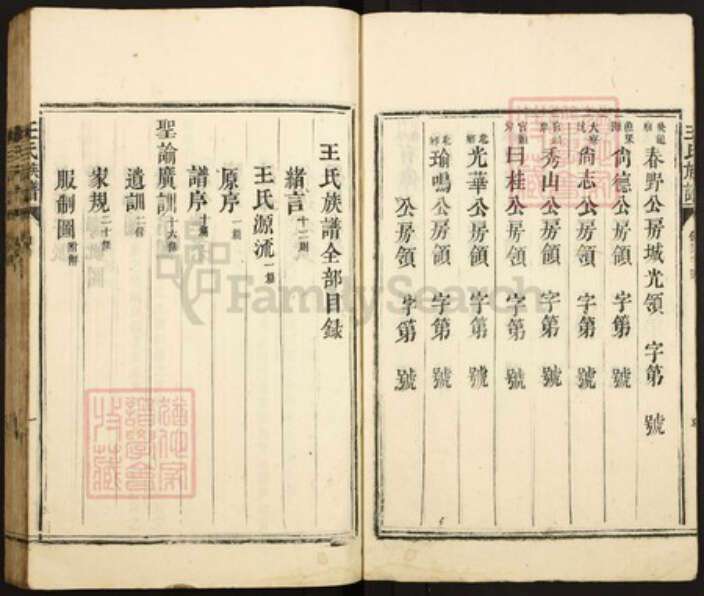 春野公房城光領 字第 號
尚德公房領 字第 號
尚志公房領 字第 號
秀山公房領 字第 號
曰桂公房領 字第 號
光華公房領 字第 號
瑜鳴公房領 字第 號
公房領 字第 號
王氏族譜
王氏族譜全部目録
緒言十二則
王氏源流一篇
原序一篇
譜序十篇
聖諭廣訓十六條
遺訓二條
家規二十條
服制圖附餘
王氏族譜
FamilySearch